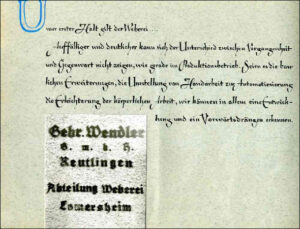 Unser erster Halt gilt der Weberei...
Auffälliger und deutlicher kann sich der Unterschied zwischen Vergangenheit
und Gegenwart nicht zeigen, wie gerade im Produktionsbetrieb. Seien es die bau-
lichen Erweiterungen, die Umstellung von Handarbeit zur Automatisierung
die Erleichterung der körperlichen Arbeit, wir können in allem ein Entwick-
lung und ein Vorwärtsdrängen erkennen.
Gebr. Wendler
G. m. b. H.
Reutlingen
Abteilung Weberei
Lomersheim